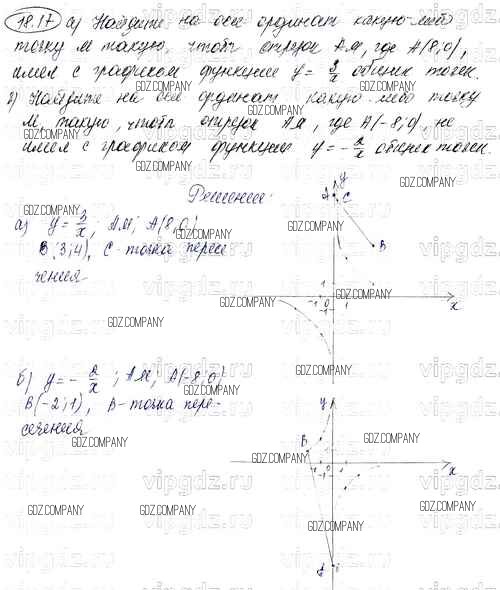 18.17 а) Найдите на оси ординат какую-либо
точку М такую, чтобы отрезок АМ, где А(8;0),
имел с графиком функции y = 3/x общих точек.
б) Найдите на оси ординат какую-либо точку
М, такую, чтобы отрезок АМ, где А(-8;0), не
имел с графиком функции y = - 2/x общих точек.
GDZ.COMPANY
Решение:
а) y = 3/x; АМ; А(8;0)
B(3;4), C-точка пересе
чения
A
y
C
B
-1
1
-1
x
б) y = - 2/x; АМ; А(-8;0)
B(-2;1), B-точка пере-
сечения
y
B
-1
1
-1
x
A
vipgdz.ru